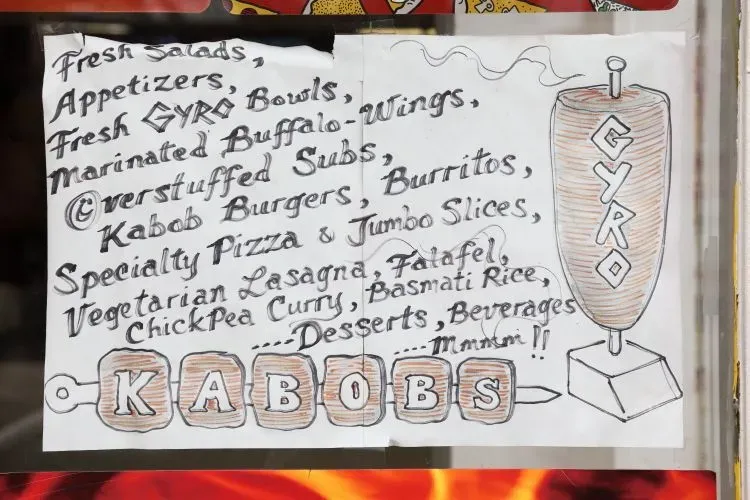 Fresh Salads,
Appetizers,
Fresh GYRO Bowls,
Marinated Buffalo-Wings,
Overstuffed Subs,
Kabob Burgers, Burritos,
Specialty Pizza & Jumbo Slices,
Vegetarian Lasagna, Falafel,
ChickPea Curry, Basmati Rice,
....Desserts, Beverages
....Mmmm!!
GYRO
KABOBS